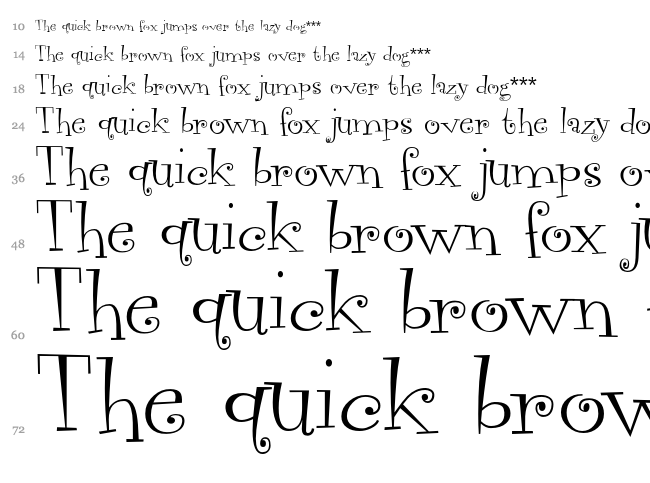 10 The quick brown fox jumps over the lazy dog***
14 The quick brown fox jumps over the lazy dog***
18 The quick brown fox jumps over the lazy dog***
24 The quick brown fox jumps over the lazy do
36 The quick brown fox jumps ov
48 The quick brown fox ju
60 The quick brown
72 The quick brow